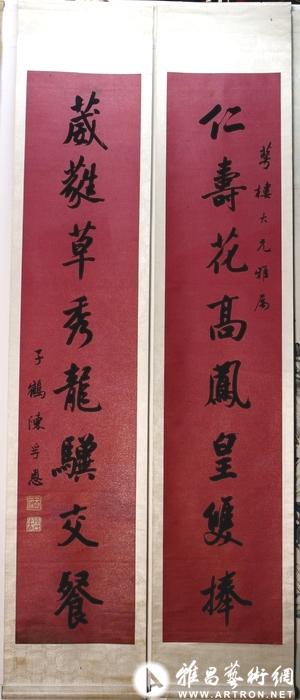 萼樓大兄雅屬
仁壽花高鳳皇雙捧
葳蕤草秀龍驥交餐
子鶴陳孚恩
雅昌藝術網
WWW.ARTRON.NET